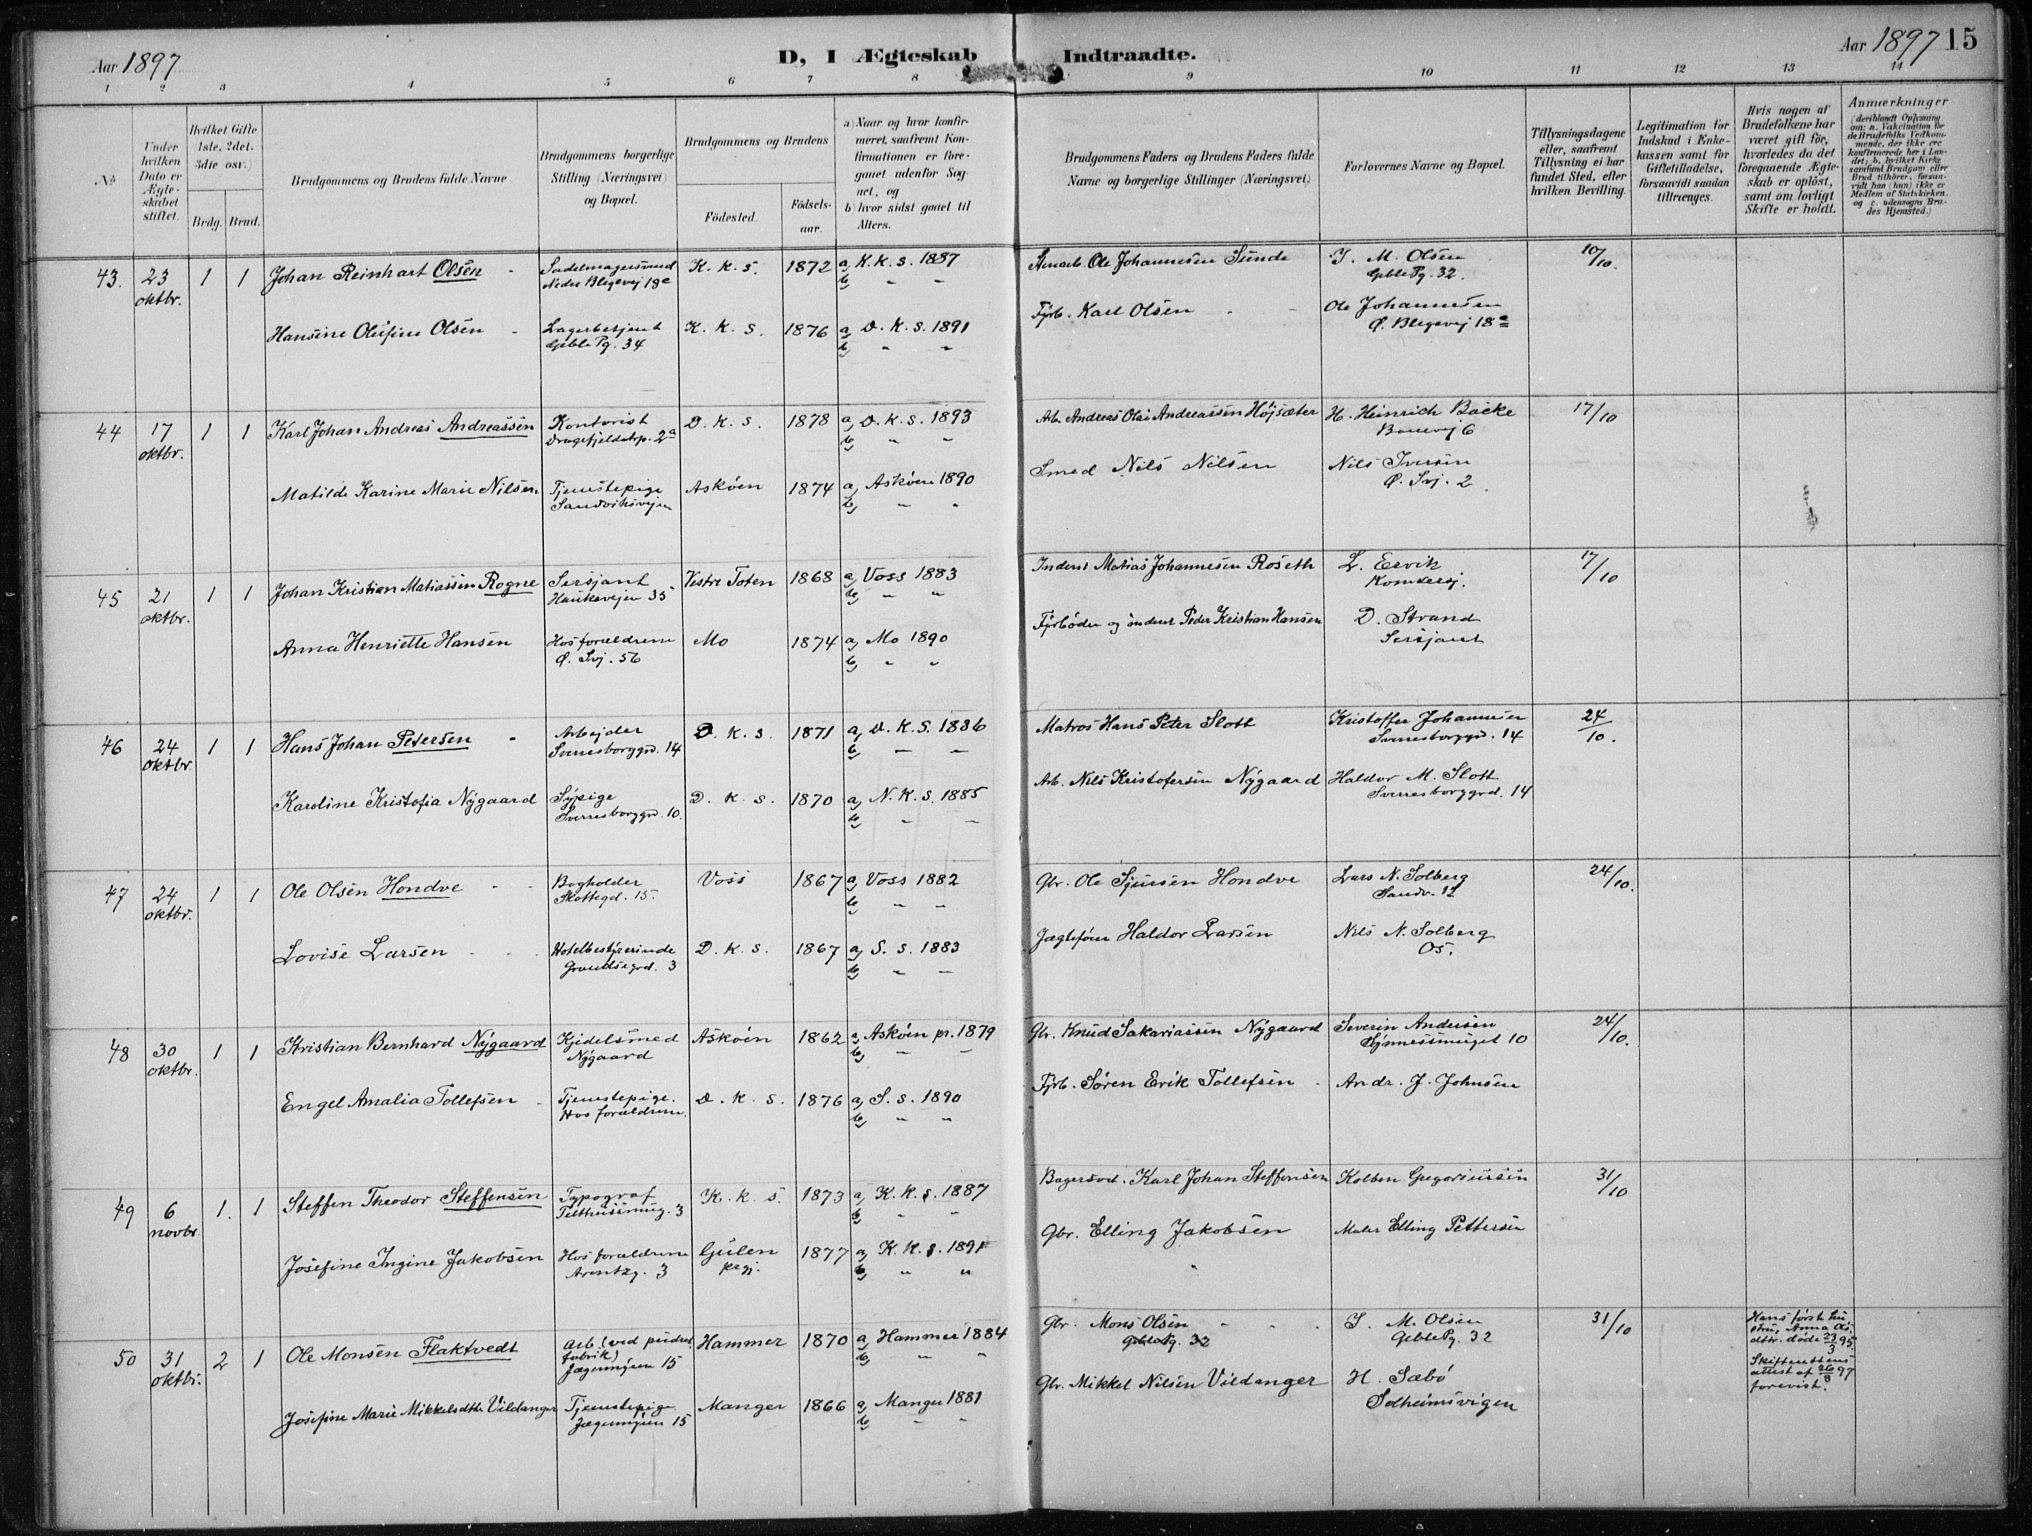 Aar 1897
D, I Ægteskab Indtraadte.
Aar 1897 15
1 2 3 4 5 6 7 8 9 10 11 12 13 14
No
Under hvilken Dato er Ægteskabet stiftet.
Hvilket Gifte 1ste, 2det, 3die osv.
Brdg. Brud.
Brudgommens og Brudens fulde Navne
Brudgommens borgerlige Stilling (Næringsvei) og Bopæl.
Brudgommens og Brudens
Födested.
Födselsaar.
a) Naar og hvor konfirmeret, saafremt Konfirmationen er foregaaet udenfor Sognet, og
b) hvor sidst gaaet til Alters.
Brudgommens Faders og Brudens Faders fulde Navne og borgerlige Stillinger (Næringsvei)
Forlovernes Navne og Bopæl.
Tillysningsdagene eller, saafremt Tillysning ei har fundet Sted, efter hvilken Bevilling.
Legitimation for Indskud i Enkekassen samt for Giftetilladelse, forsaavidt saadan tiltrænges.
Hvis nogen af Brudefolkene har været gift för, hvorledes da det foregaaende Ægteskab er oplöst, samt om lovligt Skifte er holdt.
Anmerkninger
(deriblandt Oplysning om: a. Vakcination for de Brudefolks Vedkommende, der ikke ere konfirmerede her i Landet; b. hvilket Kirkesamfund Brudgom eller Brud tilhörer, forsaavidt han (hun) ikke er Medlem af Statskirken, og c. udensogns Brudes Hjemsted.)
43. 23 oktbr. 1 1 Johan Reinhart Olsen Sadelmagersvend K. k. s. 1872 a, K. k. s. 1887 Ole Johannesen Sunde J. M. Olsen 10/10.
Nedre Blegevej 18c b, " " Geble Pg. 32.
Hansine Olufine Olsen Lagerbetjent K. k. s. 1876 a, D. k. s. 1891 Fyrb. Karl Olsen Ole Johannesen
Geble Pg. 34 b, " " Ø. Blegevej 18
44 17 oktbr. 1 1 Karl Johan Andreas Andreassen Kontorist D. k. s. 1878 a, D. k. s. 1893 Arb. Andreas Olai Andreassen Højsæter H. Heinrich Backe 17/10
2a b, " " 6
Matilde Karine Marie Nilsen Tjenestepige Askøen 1874 a, Askøen 1890 Smed Nils Nilsen Nils Iversen
Sandviksvejen b, " " Ø. Svj. 2
45 21 oktbr. 1 1 Johan Kristian Matiassen Rogne Sersjant Vestre Toten 1868 a, Voss 1883 Inderst Matias Johannesen Roseth L. Eervik 17/10
Haukevejen 35 b, " "
Anna Henriette Hansen Hos forældrene Mo 1874 a, Mo 1890 Fyrbøder og inderst Peder Kristian Hansen D. Strand
Ø. Svj. 56 b, " " Sersjant
46 24 oktbr. 1 1 Hans Johan Petersen Arbejder D. k. s. 1871 a, D. K. S. 1886 Matros Hans Peter Slott Kristoffer Johannesen 24/10.
Sverresborggd. 14 b, " " Sverresborggd. 14
Karoline Kristofia Nygaard Sypige D. k. s. 1870 a, N. K. s. 1885 Arb. Nils Kristofersen Nygaard Haldor M. Slott
Sverresborggd. 10 b, " " Sverresborggrd. 14
47 24 oktbr. 1 1 Ole Olsen Hondve Bogholder Voss 1867 a, Voss 1882 Gbr. Ole Sjursen Hondve Lars N. Solberg 24/10.
Skottegd. 15. b, " " Sandv. 12
Lovise Larsen Hotelbestyrerinde D. k. s. 1867 a, S. s. 1883 Jægtefører Haldor Larsen Nils N. Solberg
3 b, " " Os.
48 30 oktbr. 1 1 Kristian Bernhard Nygaard Kjedelsmed Askøen 1862 a, Askøen pr. 1879 Gbr. Knud Sakariassen Nygaard Severin Andersen 24/10.
Nygaard b, " " 10
Engel Amalia Tollefsen Tjenestepige. D. k. s. 1876 a, S. s. 1890 Fyrb. Søren Erik Tollefsen Andr. J. Johnsen
Hos forældrene b, " "
49 6 novbr. 1. 1 Steffen Theodor Steffensen Typograf K. k. s. 1873 a, K. k. s. 1887 Bagersvd. Karl Johan Steffensen Kolben Gregoriussen 31/10
Telthussmug. 3 b, " "
Josefine Ingine Jakobsen Hos forældrene Gulen prgj. 1877 a, K. k. s. 1891 Gbr. Elling Jakobsen Maler Elling Pettersen
3 b, " "
50 31 oktbr. 2 1 Ole Monsen Flaktvedt Arb. (ved pudretfabrik) Hammer 1870 a, Hammer 1884 Gbr. Mons Olsen J. M. Olsen 31/10 Hans først hustru, Anna Olsdtr. døde 23/3 95.
Jægermyren 15 b, " " Geble Pg. 32 Geble Pg. 32 Skifterettens attest af 26/8 97 forevist.
Josefine Marie Mikkelsdtr. Vildanger Tjenestepige Manger 1866 a, Manger 1881 Gbr. Mikkel Nilsen Vildanger H. Sæbø
Jægermyren 15 b, " " Solheimsvigen